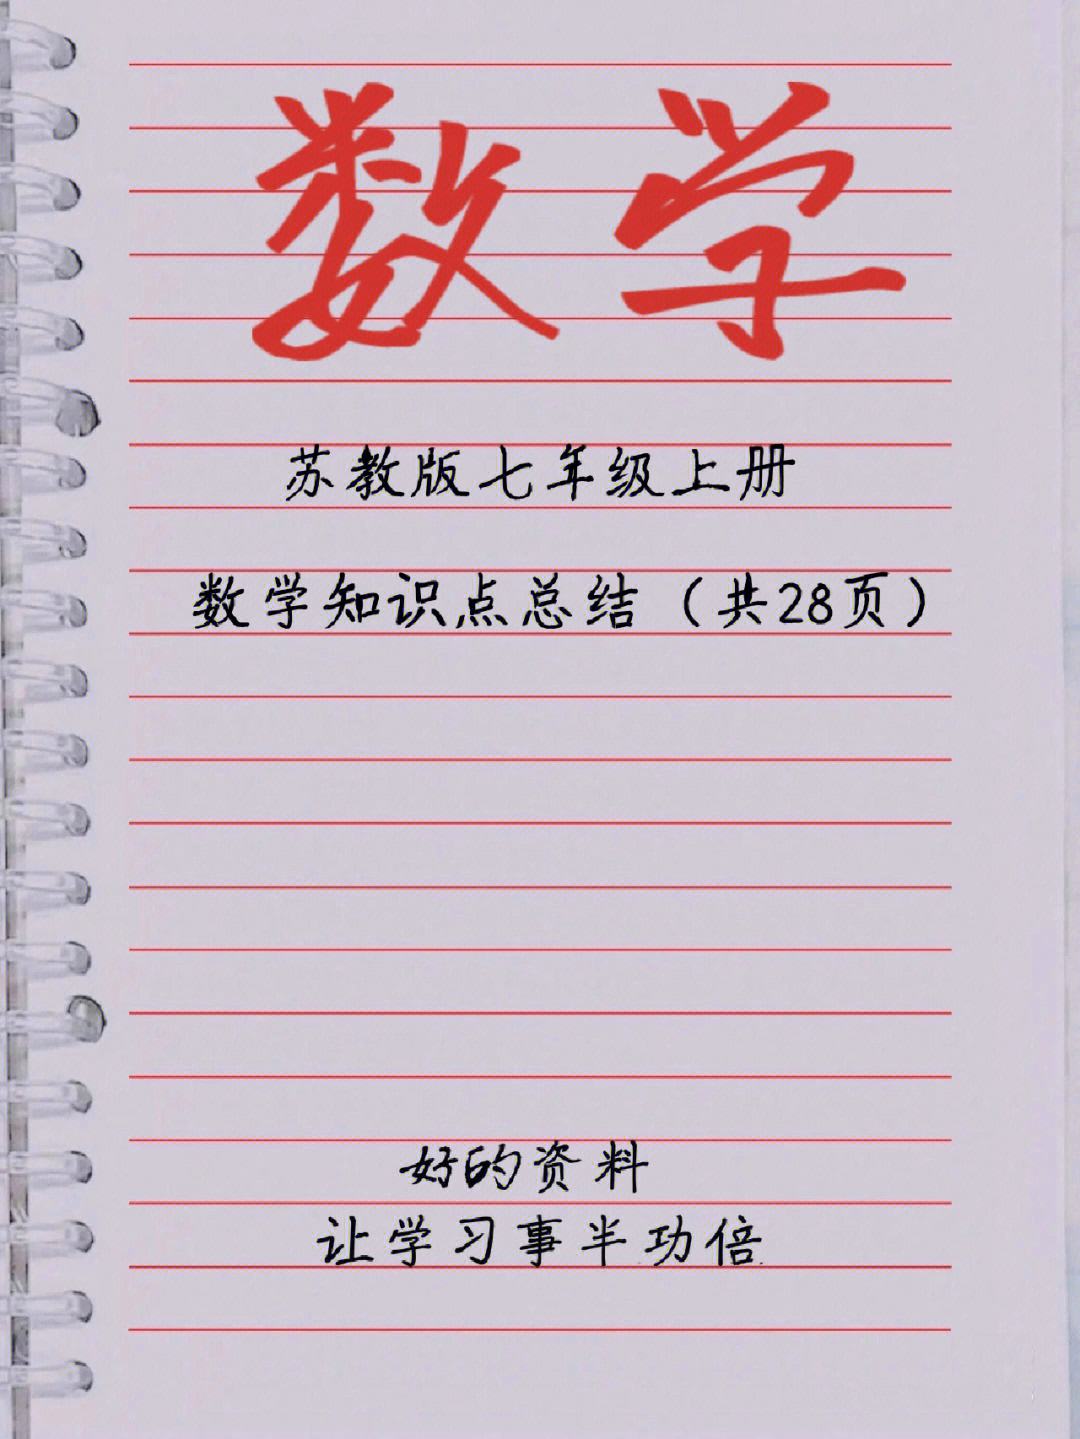 数学
苏教版七年级上册
数学知识点总结（共28页）
好的资料
让学习事半功倍